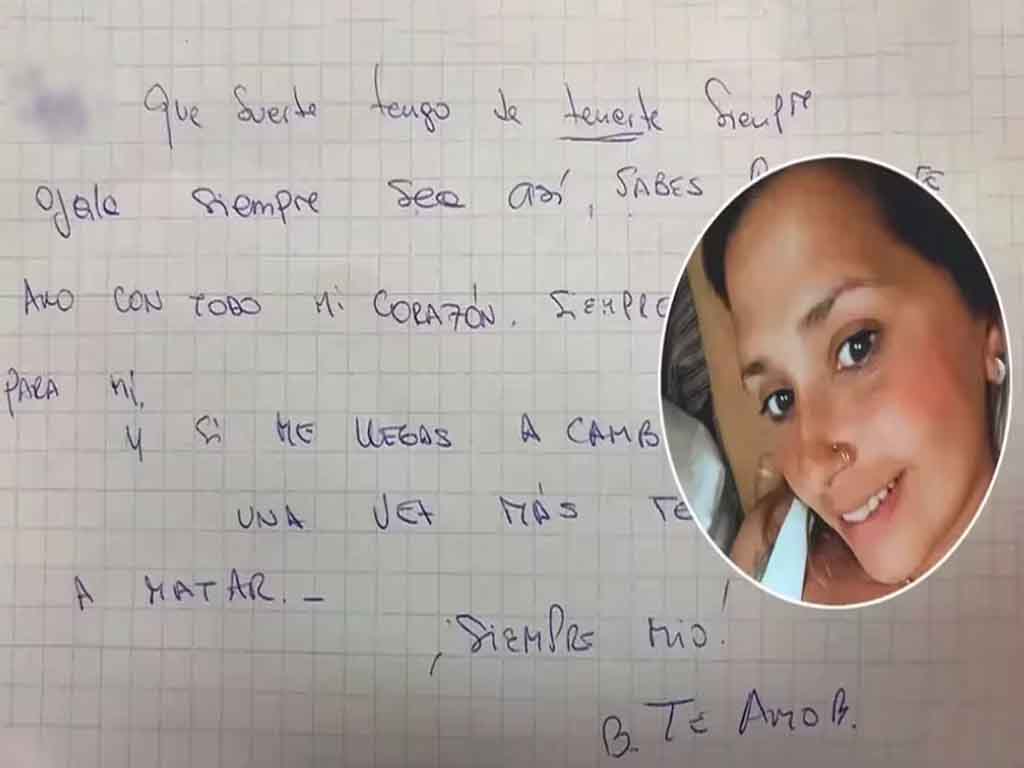 Que suerte tengo de tenerte siempre
Ojala siempre sea así, SABES TE
AMO CON TODO MI CORAZÓN. SIEMPRE
PARA MÍ.
Y SI ME LLEGAS A CAMB
UNA VEZ MÁS TE
A MATAR. _
¡SIEMPRE MIO!
B. TE AMO B.